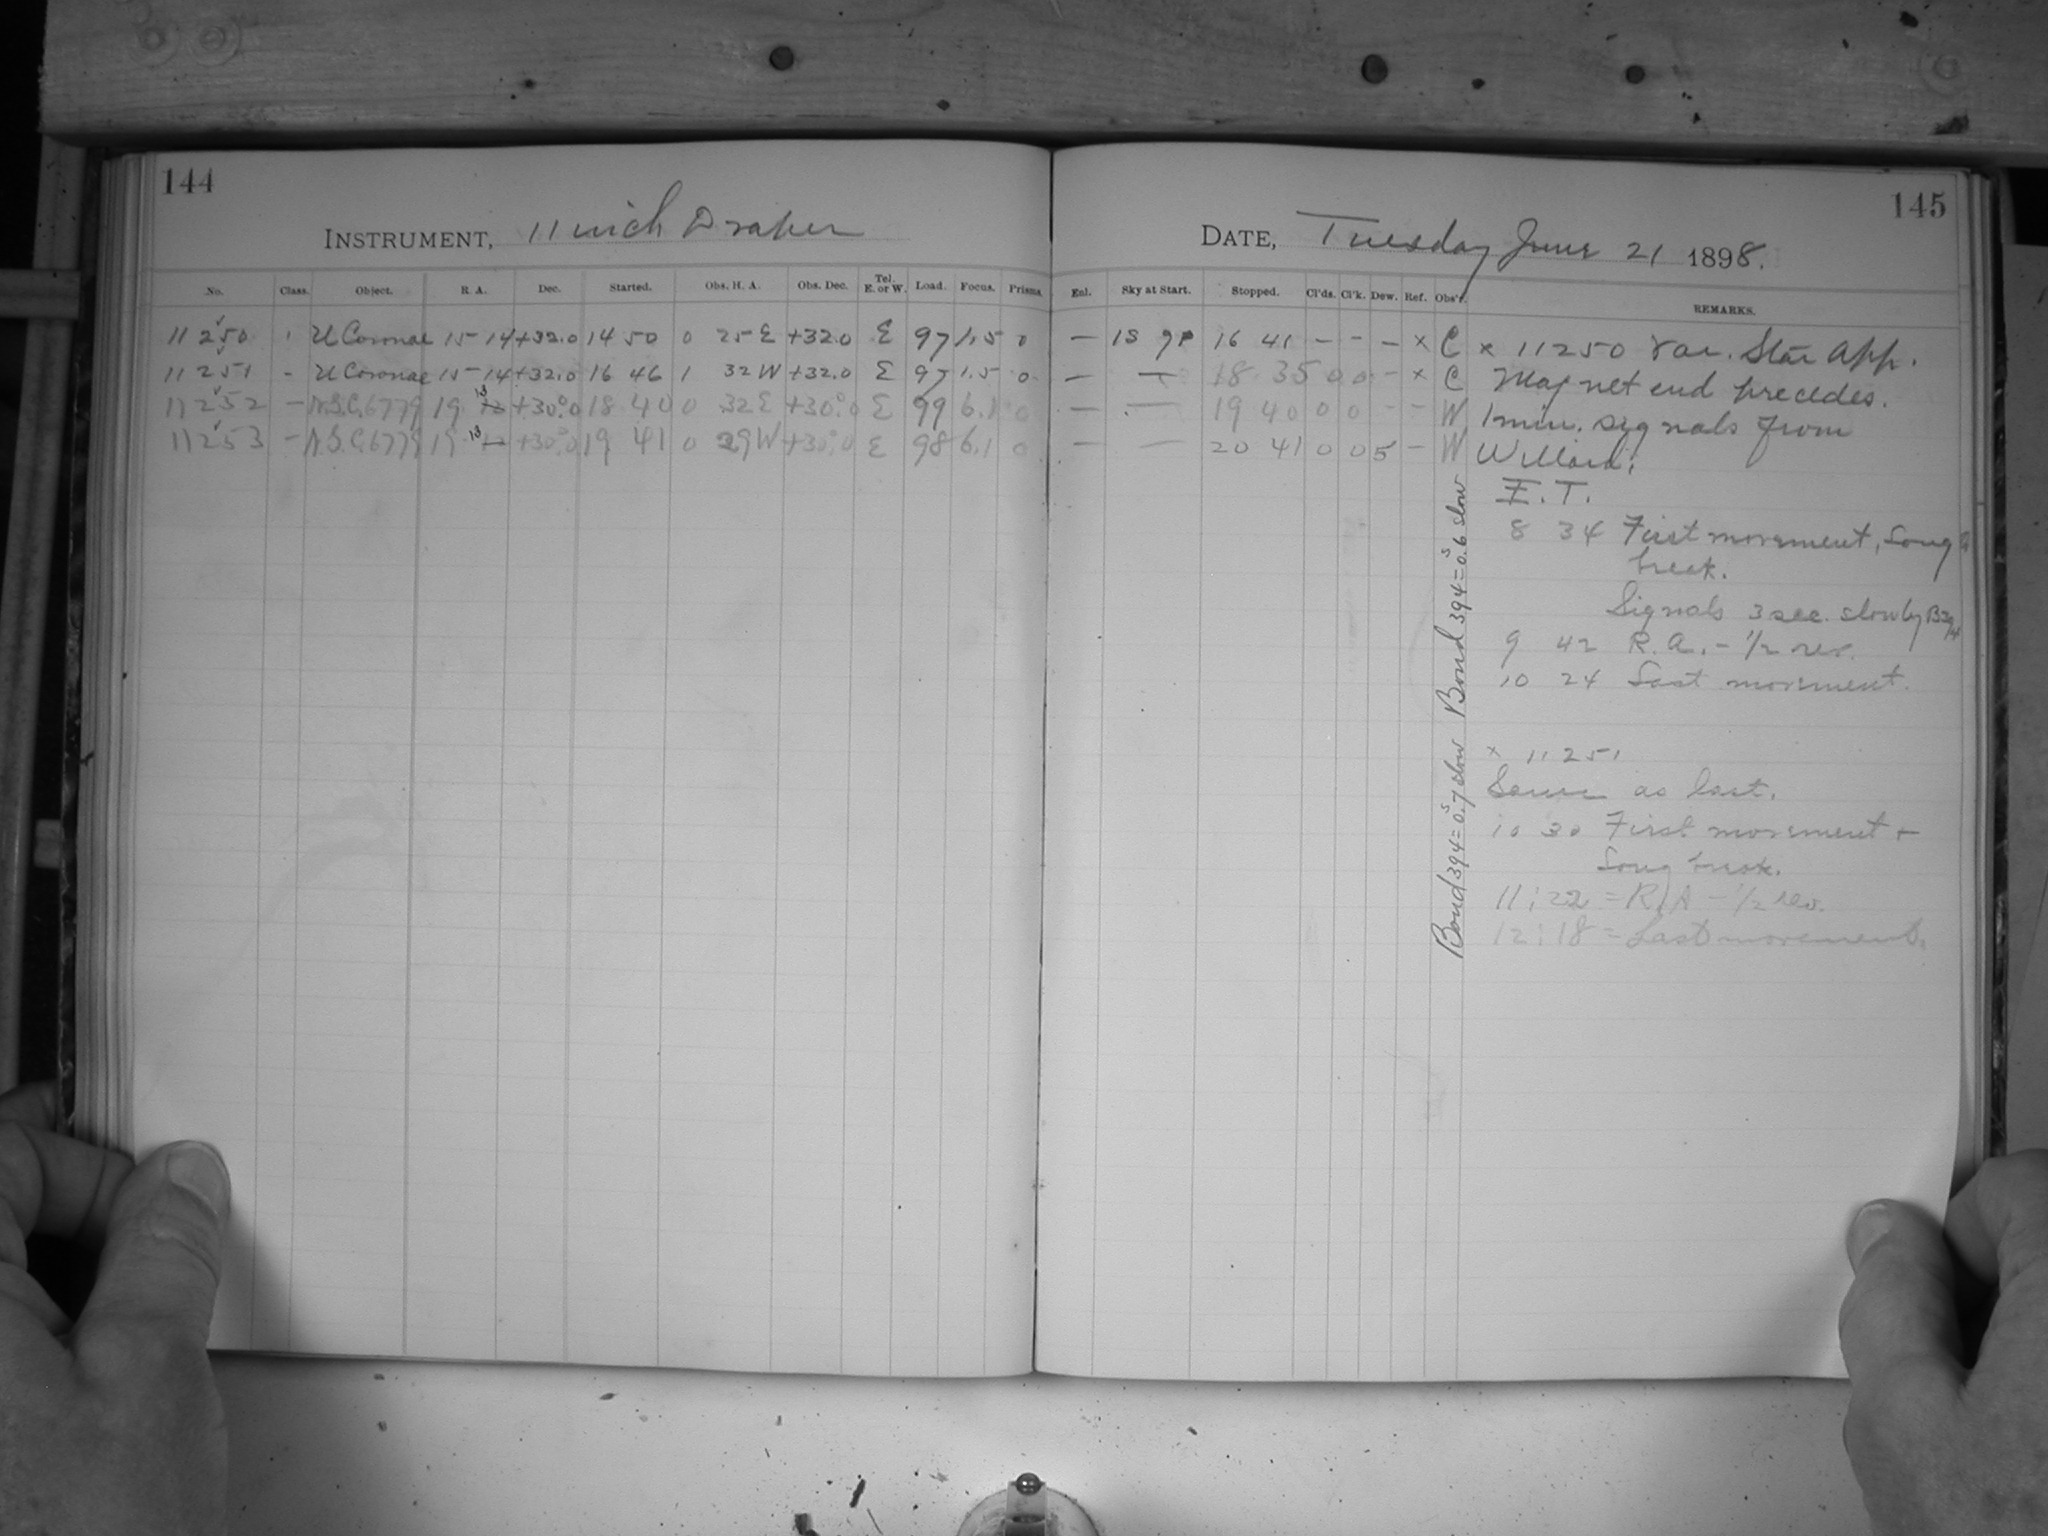 144
INSTRUMENT, 11 inch Draper
No. Class. Object. R. A. Dec. Started. Obs. H. A. Obs. Dec. Tel. E. or W. Load. Focus. Prisms.
11250 U Coronae 15 14 +32.0 14 50 0 25 E +32.0 E 97 1.5 0
11251 - U Coronae 15 14 +32.0 16 46 1 32 W +32.0 E 97 1.5 0
11252 - N.G.C. 6779 19 13 +30°.0 18 40 0 32 E +30°.0 E 99 6.1 0
11253 - N.G.C. 6779 19 13 +30°.0 19 41 0 29 W +30°.0 E 98 6.1 0
145
DATE, Tuesday June 21 1898.
Enl. Sky at Start. Stopped. Cl'ds. Cl'k. Dew. Ref. Obs'r. REMARKS.
— 16 41 - - - × C × 11250 Var. Star App.
— — 18 35 0 0 - × C Magnet end precedes.
— — 19 40 0 0 - - W 1 min. signals from
— — 20 41 0 0 5 - W Willard.
E. T.
8 34 First movement, Long
break.
Signals 3 sec. slow by
9 42 R. A. - 1/2 rev.
10 24 Last movement.
× 11251
Same as last.
10 30 First movement +
Long break.
11:22 = R.A - 1/2 rev.
12:18 = Last movement.
Bond 394 = 0.7ˢ slow Bond 394 = 0.6ˢ slow